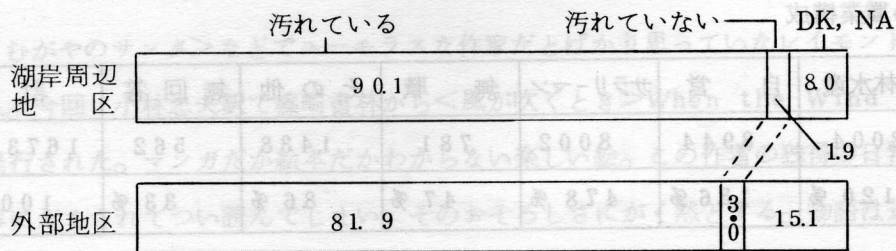 汚れている 汚れていない DK, NA
湖岸周辺地区 90.1 8.0
1.9
外部地区 81.9 3.0 15.1